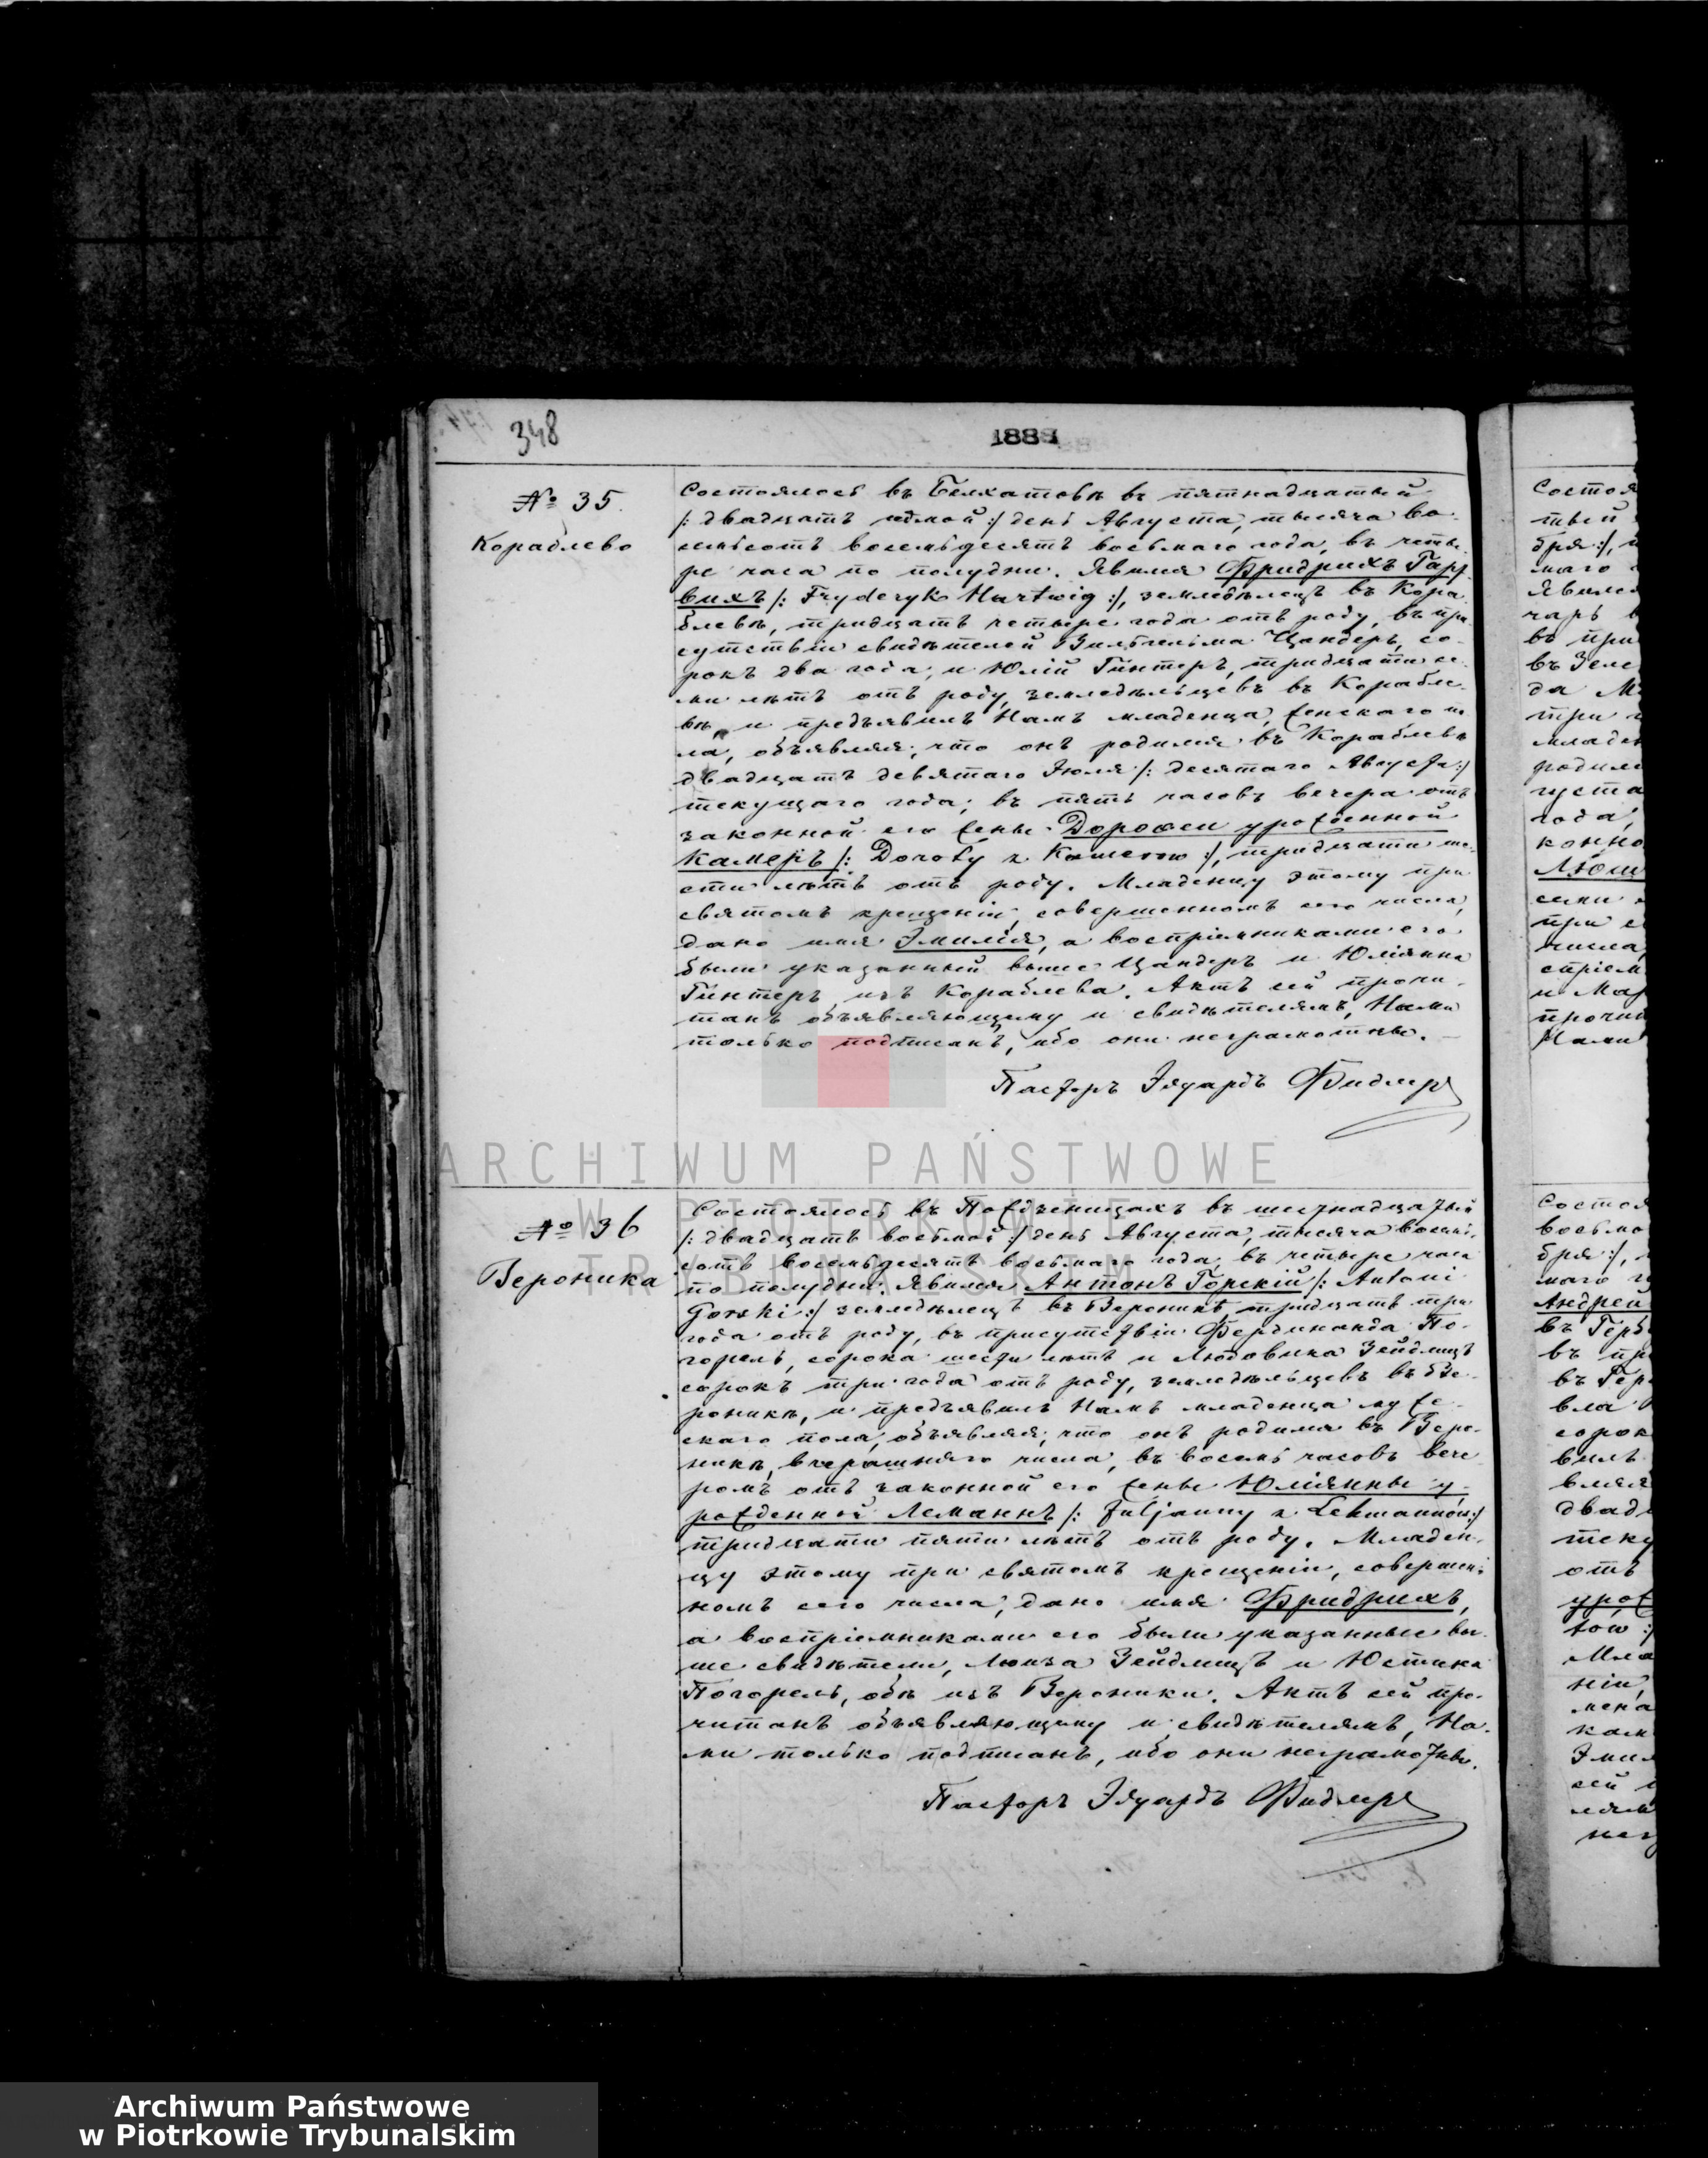 348
1888
№ 35.
Кораблево
Состоялось въ Белхатовѣ въ пятнадцатый
/: двадцать седмой :/ день Августа, тысяча во-
семьсотъ восемьдесятъ восьмаго года, въ четы-
ре часа по полудни. Явился Фридрихъ Гарт-
вихъ /: Fryderyk Hartwig :/, земледѣлецъ въ Кора-
блевѣ, тридцать четыре года отъ роду, въ при-
сутствіи свидѣтелей Вильгельма Цандеръ, со-
рокъ два года, и Юлій Гинтеръ, тридцати се-
ми лѣтъ отъ роду, земледѣльцевъ въ Корабле-
вѣ, и предъявилъ Намъ младенца женскаго по
ла, объявляя, что онъ родился въ Кораблевѣ
двадцать девятаго Іюля /: десятаго Августа :/
текущаго года, въ пять часовъ вечера отъ
законной его жены Дорофеи урожденной
Камеръ /: Doroty z Kamerow :/, тридцати ше-
сти лѣтъ отъ роду. Младенцу этому при
святомъ крещеніи, совершенномъ сего числа,
дано имя Эмилія, а воспріемниками его
были указанный выше Цандеръ и Юліянна
Гинтеръ изъ Кораблева. Актъ сей прочи-
танъ объявляющему и свидѣтелямъ, Нами
только подписанъ, ибо они неграмотны. —
Пасторъ Эдуардъ Фидлеръ
№ 36
Вероника
Состоялось въ Пожджѣницахъ въ шестнадцатый
/: двадцать восьмой :/ день Августа, тысяча восемь-
сотъ восемьдесятъ восьмаго года, въ четыре часа
по полудни. Явился Антонъ Горскій /: Antoni
Gorski :/ земледѣлецъ въ Вероникѣ, тридцать три
года отъ роду, въ присутствіи Фердинанда По-
горель, сорока шести лѣтъ и Людовика Зейдлицъ
сорокъ три года отъ роду, земледѣльцевъ въ Ве-
роникѣ, и предъявилъ Намъ младенца муже-
скаго пола, объявляя, что онъ родился въ Веро-
никѣ, вчерашняго числа, въ восемь часовъ вече
ромъ отъ законной его жены Юліянны у-
рожденной Леманнъ /: Juljanny z Lehmannow :/
тридцати пяти лѣтъ отъ роду. Младен-
цу этому при святомъ крещеніи, совершен-
номъ сего числа, дано имя Фридрихъ,
а воспріемниками его были указанные вы-
ше свидѣтели, Луиза Зейдлицъ и Юстина
Погорель, обѣ изъ Вероники. Актъ сей про-
читанъ объявляющему и свидѣтелямъ, На-
ми только подписанъ, ибо они неграмотны.
Пасторъ Эдуардъ Фидлеръ
ARCHIWUM PAŃSTWOWE
W PIOTRKOWIE
TRYBUNALSKIM
Archiwum Państwowe
w Piotrkowie Trybunalskim